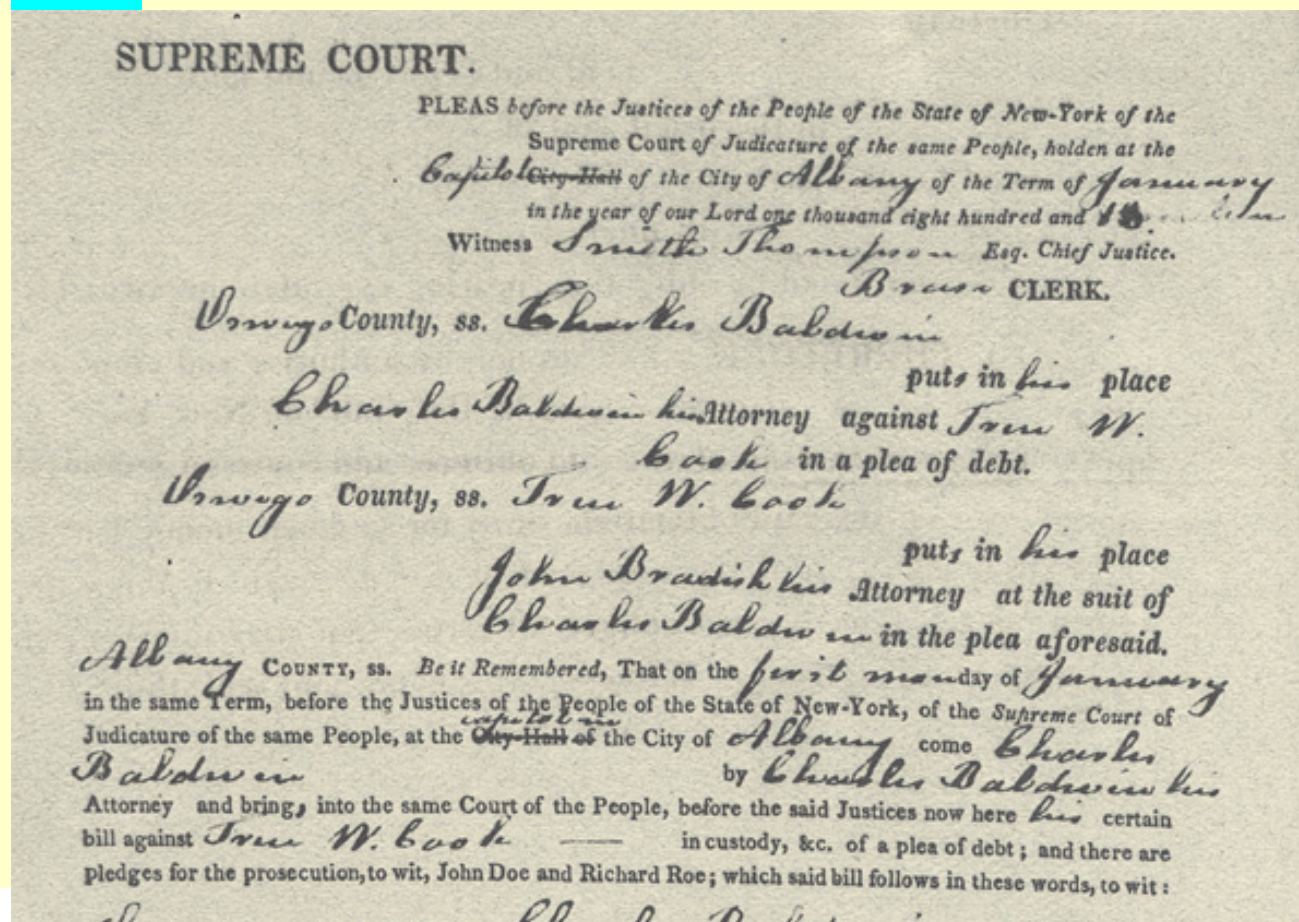 SUPREME COURT.
PLEAS before the Justices of the People of the State of New-York of the
Supreme Court of Judicature of the same People, holden at the
Capitol City-Hall of the City of Albany of the Term of January
in the year of our Lord one thousand eight hundred and
Witness Smith Thompson Esq. Chief Justice.
CLERK.
Oswego County, ss. Charles Baldwin
puts in his place
Charles Baldwin his Attorney against Truu W.
Cook in a plea of debt.
Oswego County, ss. Truu W. Cook
puts in his place
John Bradish his Attorney at the suit of
Charles Baldwin in the plea aforesaid.
Albany COUNTY, ss. Be it Remembered, That on the first monday of January
in the same Term, before the Justices of the People of the State of New-York, of the Supreme Court of
capitol in
Judicature of the same People, at the City-Hall of the City of Albany come Charles
Baldwin by Charles Baldwin his
Attorney and bring, into the same Court of the People, before the said Justices now here his certain
bill against Truu W. Cook in custody, &c. of a plea of debt; and there are
pledges for the prosecution, to wit, John Doe and Richard Roe; which said bill follows in these words, to wit: